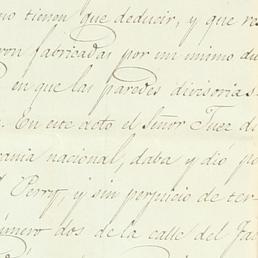 mo tienen que deducir, y que re
ron fabricadas por un mismo du
en que las paredes divisorias
En este acto el Señor Juez d
rania nacional, daba y dió p
Perry, y sin perjuicio de ter
úmero dos de la calle del